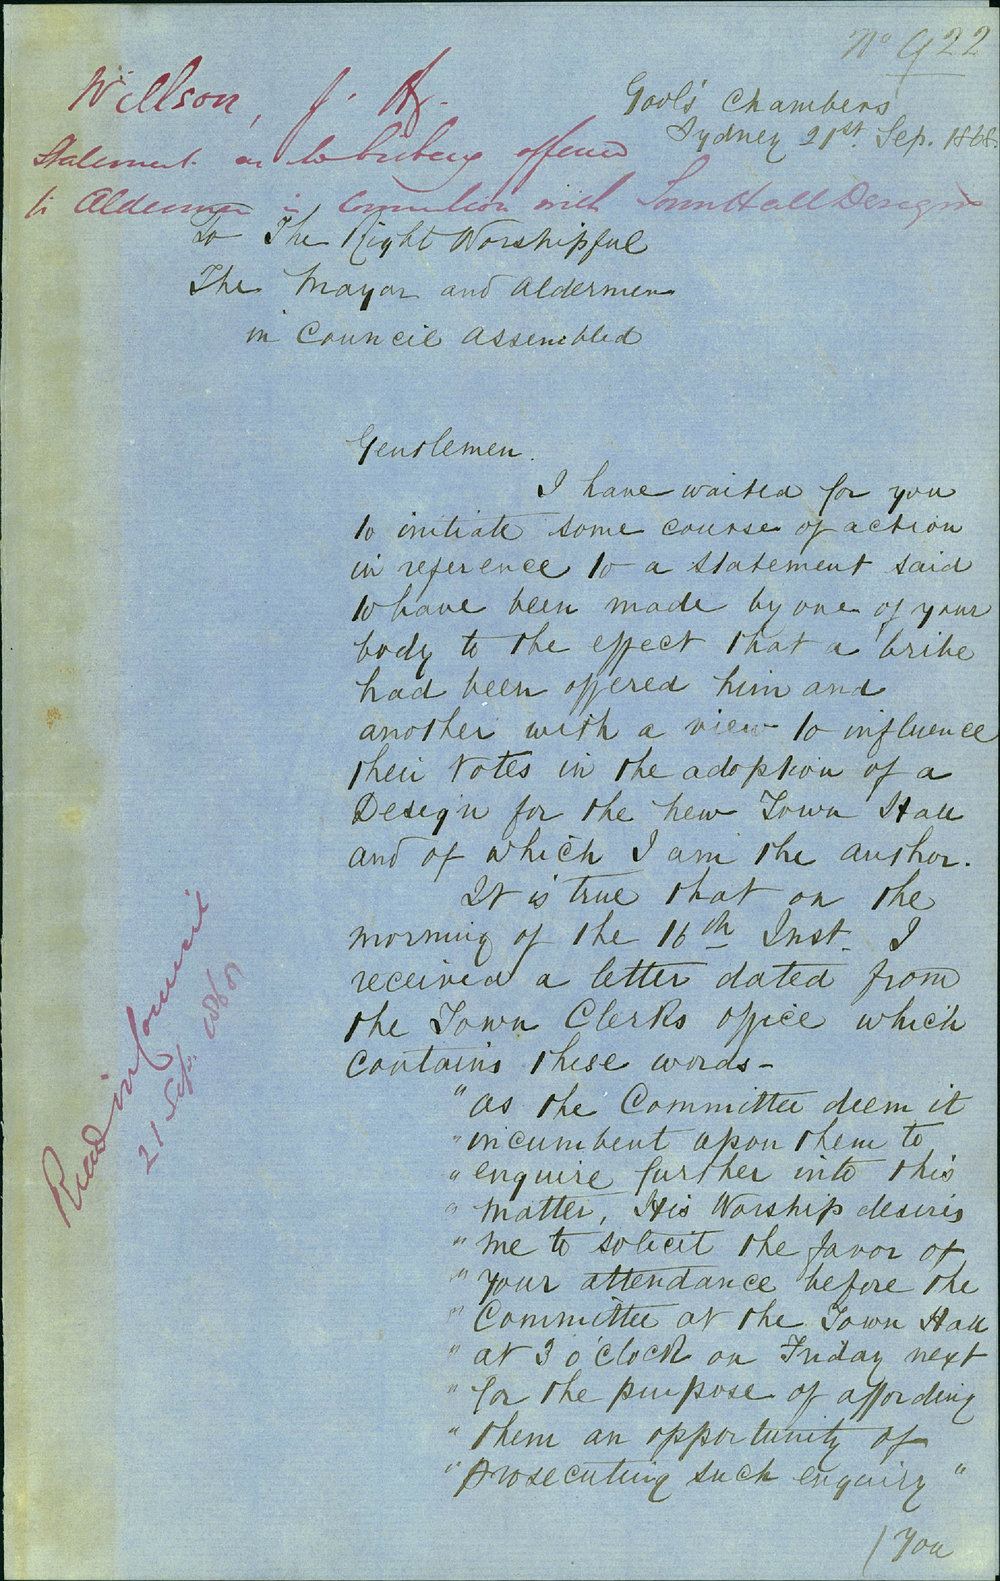 No 922
Willson, J. H.
Gool's Chambers
Sydney 21st Sep. 1868.
Statement as to bribery offered
to Aldermen in connection with Town Hall Design
To The Right Worshipful
The Mayor and Aldermen
in Council Assembled
Gentlemen.
I have waited for you
to initiate some course of action
in reference to a statement said
to have been made by one of your
body to the effect that a bribe
had been offered him and
another with a view to influence
their votes in the adoption of a
Design for the new Town Hall
and of which I am the author.
It is true that on the
morning of the 16th Inst. I
received a letter dated from
the Town Clerks office which
contains these words -
"as the Committee deem it
"incumbent upon them to
"enquire further into this
"matter, His Worship desires
"me to solicit the favor of
"your attendance before the
"Committee at the Town Hall
"at 3 o'clock on Friday next
"for the purpose of affording
"them an opportunity of
"prosecuting such enquiry"
/ You
Read in Council
21 Sept. 1868